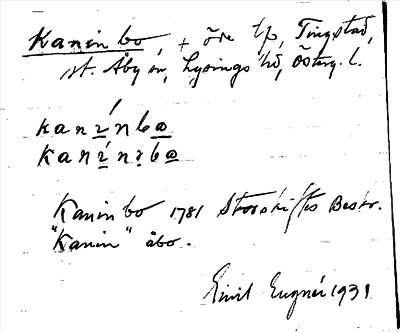 Kaninbo, + öre tp, Tingstad,
st. Åby sn, Lysings hd, Österg. l.
kanínbo
kanínbo
Kaninbo 1781 Storskiftes Beskr.
"Kanin" åbo.
Emil Eugnér 1931